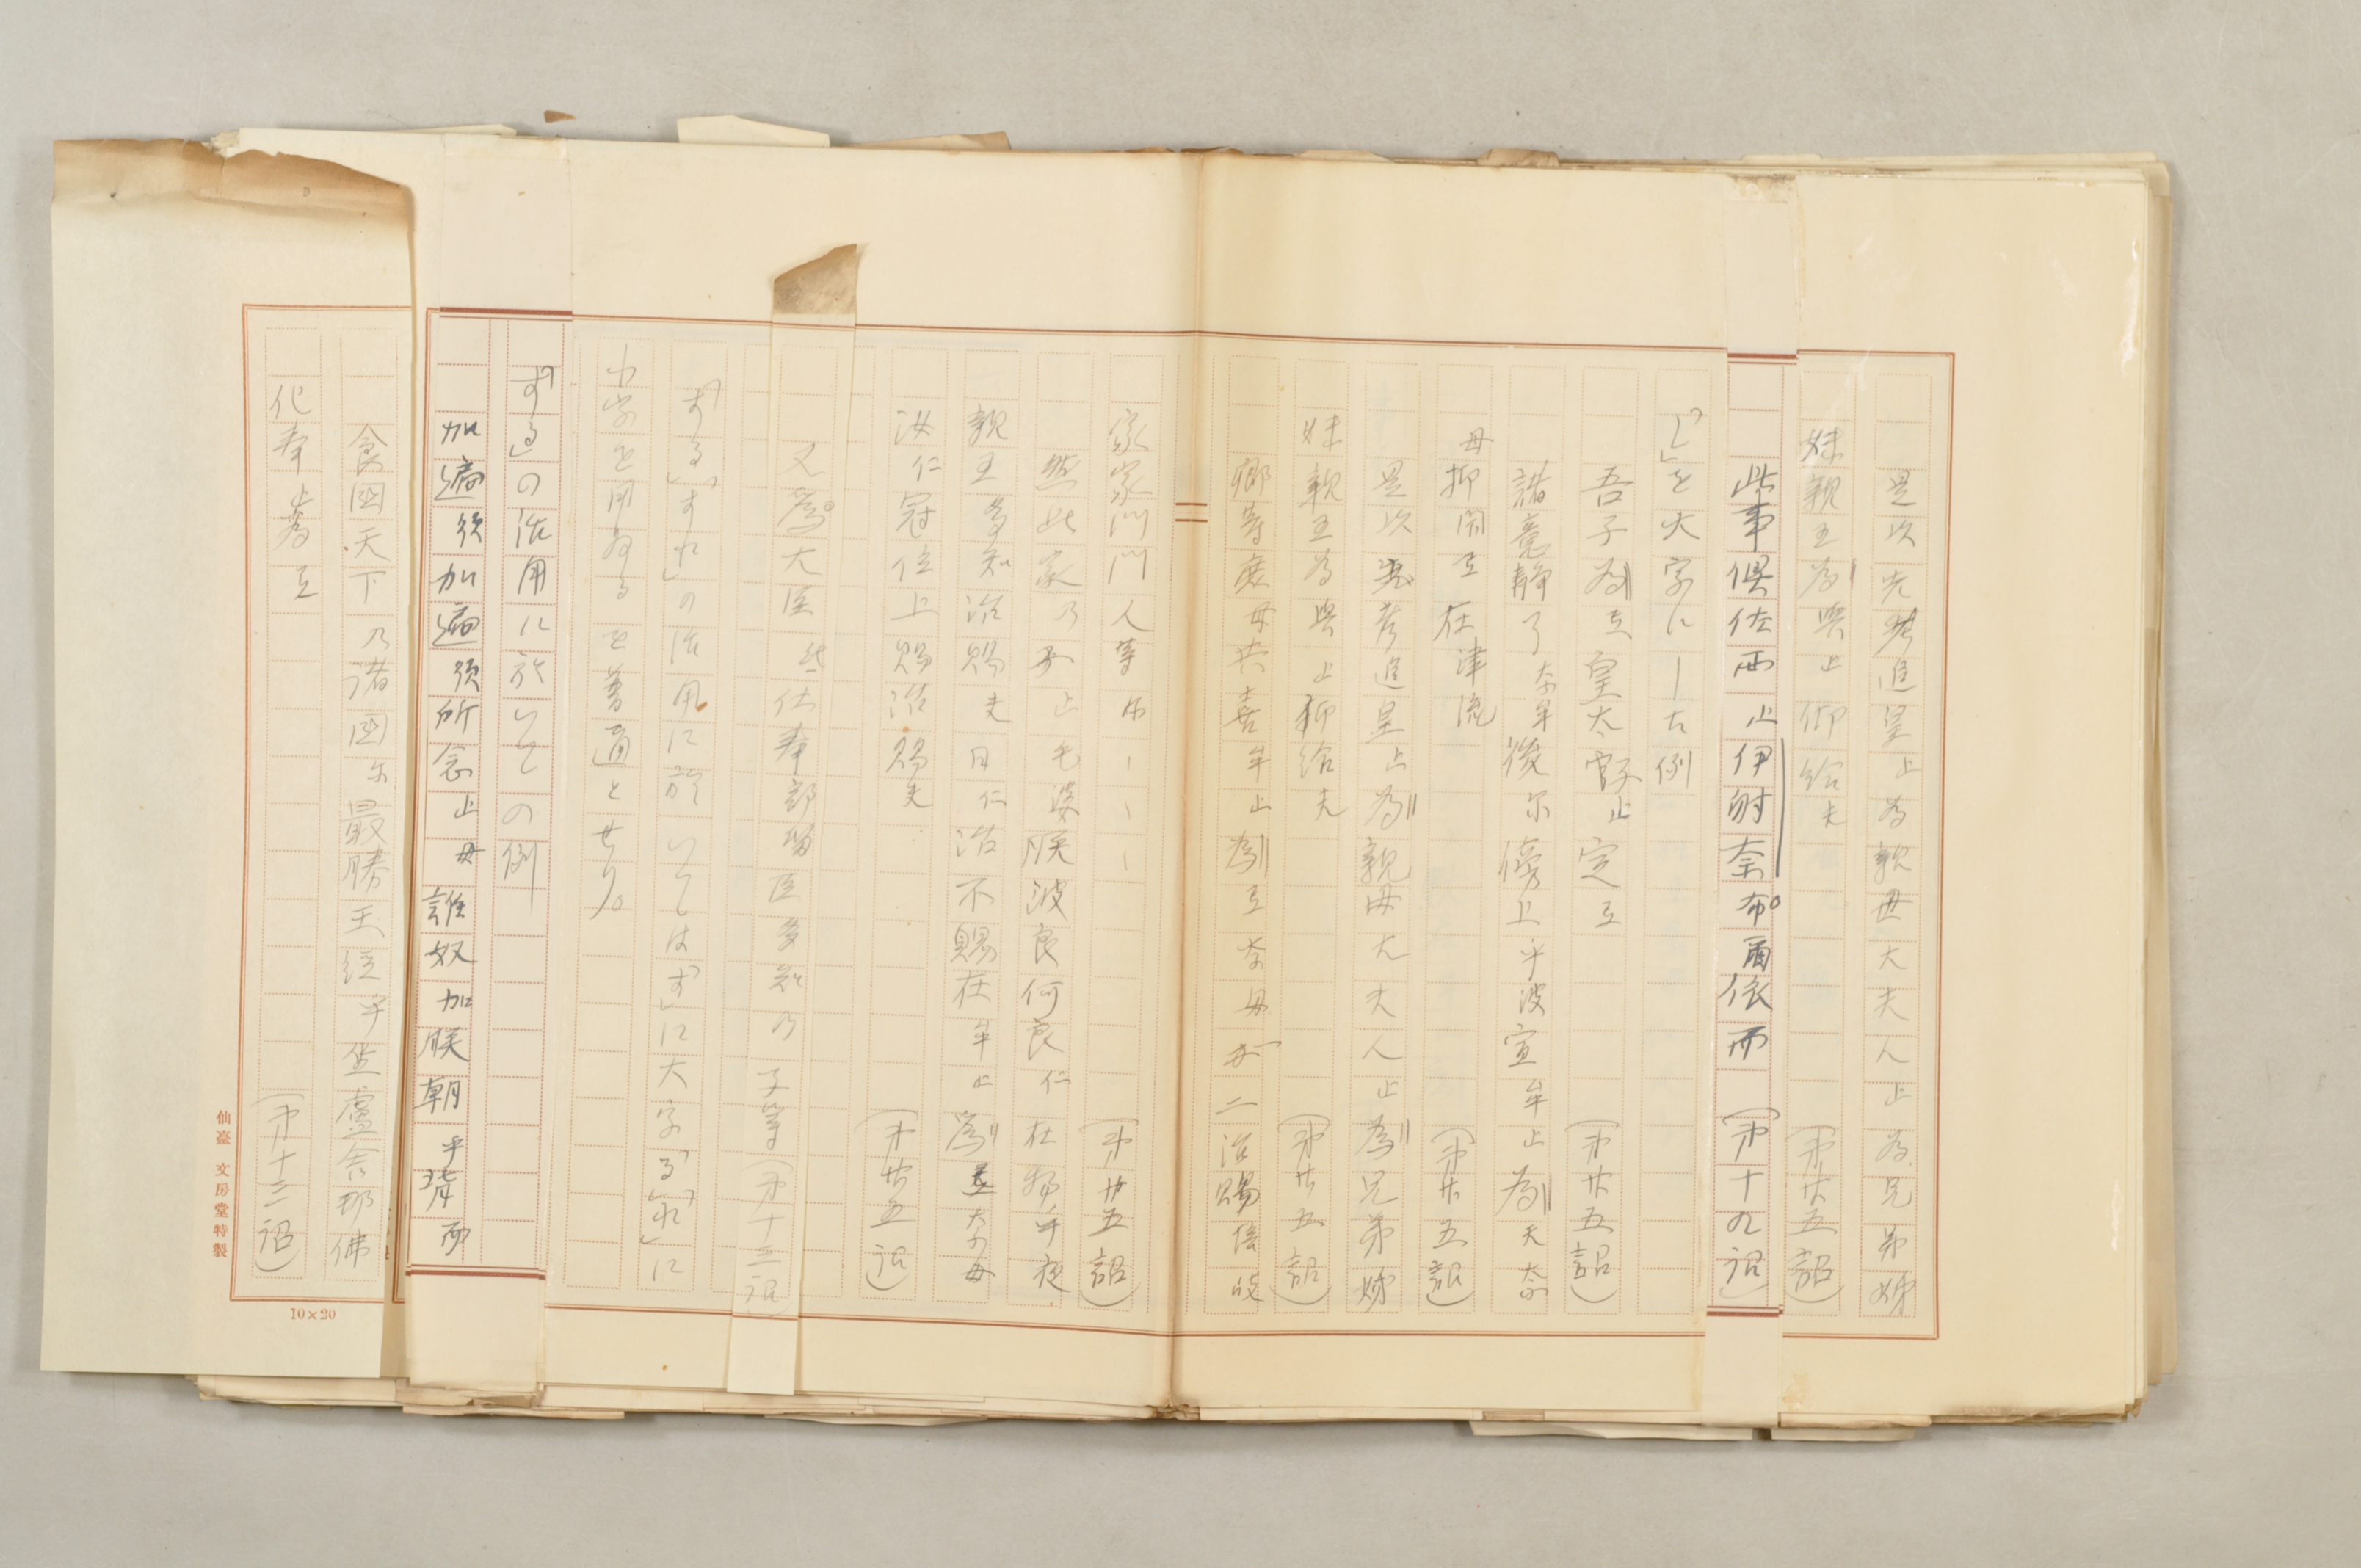 是以先考追皇止為親母大夫人止為兄弟姉
妹親王為與止仰給夫 (第廿五詔)
此事倶佐西止伊射奈布爾依而 (第十九詔)
「し」を大字にし一た例
吾子為互皇太子止定互 (第廿五詔)
諸意静了奈牟後尓傍上乎波宣牟止為天奈
母抑閇互在津流 (第廿五詔)
是以先考追皇止為親母大夫人止為兄弟姉
妹親王為與止仰給夫 (第廿五詔)
卿等庶母共喜牟止為互奈母二治賜倍岐
家家門門人等尓 (第廿五詔)
然此家乃子止毛婆朕波良何良仁在物乎夜
親王多知治賜夫日仁治不賜在牟止為互奈母
汝仁冠位上賜治賜夫 (第廿五詔)
又為大臣仕奉部留臣多知乃子等 (第十三詔)
「する」「すれ」の活用に於いては「す」に大字「る」「れ」に
小字を用ゐるを普通とせり。
「する」の活用に於いての例
加遍須加遍須所念止毋誰奴加朕朝乎背而
食国天下乃諸国尓最勝王経乎坐盧舎那佛
化奉止為互 (第十三詔)
仙臺 文房堂特製
10×20